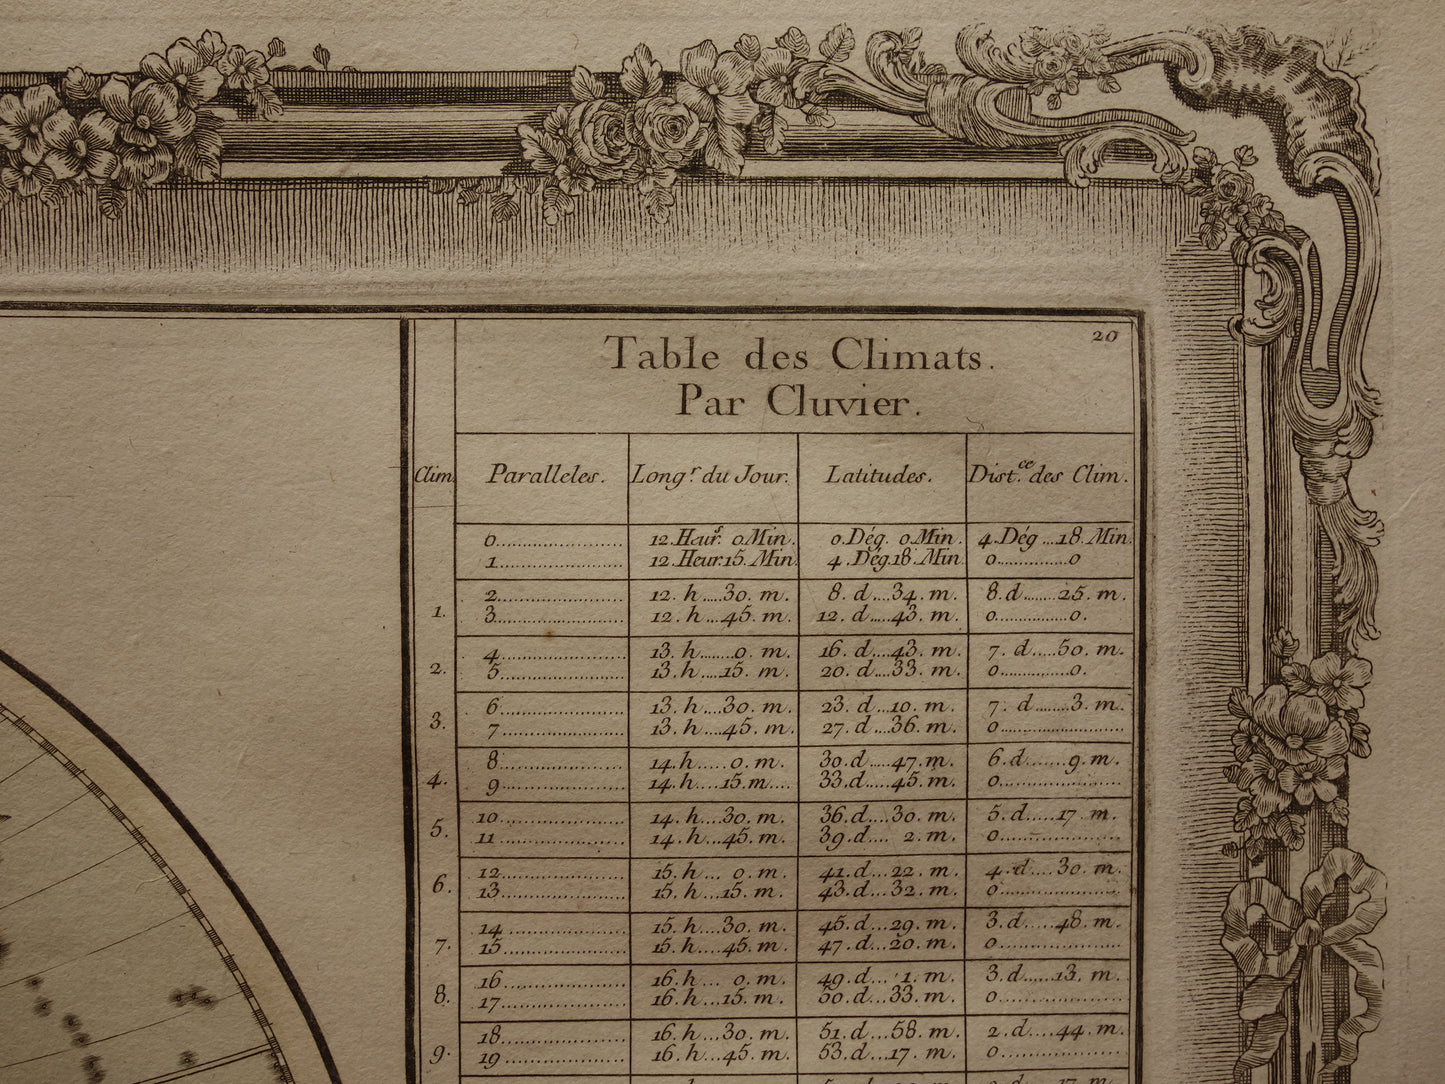 20
Table des Climats.
Par Cluvier.
Clim. Paralleles. Long.r du Jour. Latitudes. Dist.ce des Clim.
0 12. Heur.s 0 Min. 0. Dég. 0 Min. 4. Dég....18. Min.
1 12. Heur. 15. Min. 4. Dég. 18. Min. 0...............0
2 12. h.....30. m. 8. d....34. m. 8. d........25. m.
1. 3 12. h....45. m. 12. d.....43. m. 0...............0.
4 13. h........0. m. 16. d....43. m. 7. d.....50. m.
2. 5 13. h....15. m. 20. d....33. m. 0...............0.
6 13. h....30. m. 23. d...10. m. 7. d........3. m.
3. 7 13. h....45. m. 27. d....36. m. 0
8 14. h.....0. m. 30. d.....47. m. 6. d.......9. m.
4. 9 14. h.....15. m.... 33. d.....45. m. 0
10 14. h....30. m. 36. d....30. m. 5. d.....17. m.
5. 11 14. h....45. m. 39. d.... 2. m. 0
12 15. h... 0. m. 41. d...22. m. 4. d....30. m.
6. 13 15. h...15. m. 43. d...32. m. 0
14 15. h....30. m. 45. d...29. m. 3. d.....48. m.
7. 15 15. h....45. m. 47. d...20. m. 0
16 16. h... 0. m. 49. d... 1. m. 3. d......13. m.
8. 17 16. h...15. m. 50. d...33. m. 0
18 16. h...30. m. 51. d...58. m. 2. d....44. m.
9. 19 16. h...45. m. 53. d...17. m. 0